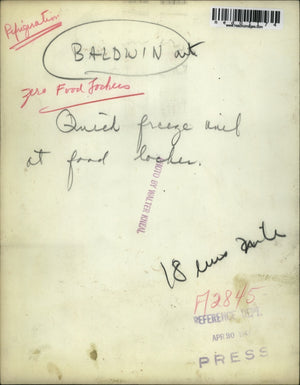 Refrigeration
BALDWIN art
Zero Food Lockers
Quick freeze unit
at food locker.
PHOTO BY WALTER KNEAL
18
F12845
REFERENCE DEPT.
APR 30
PRESS